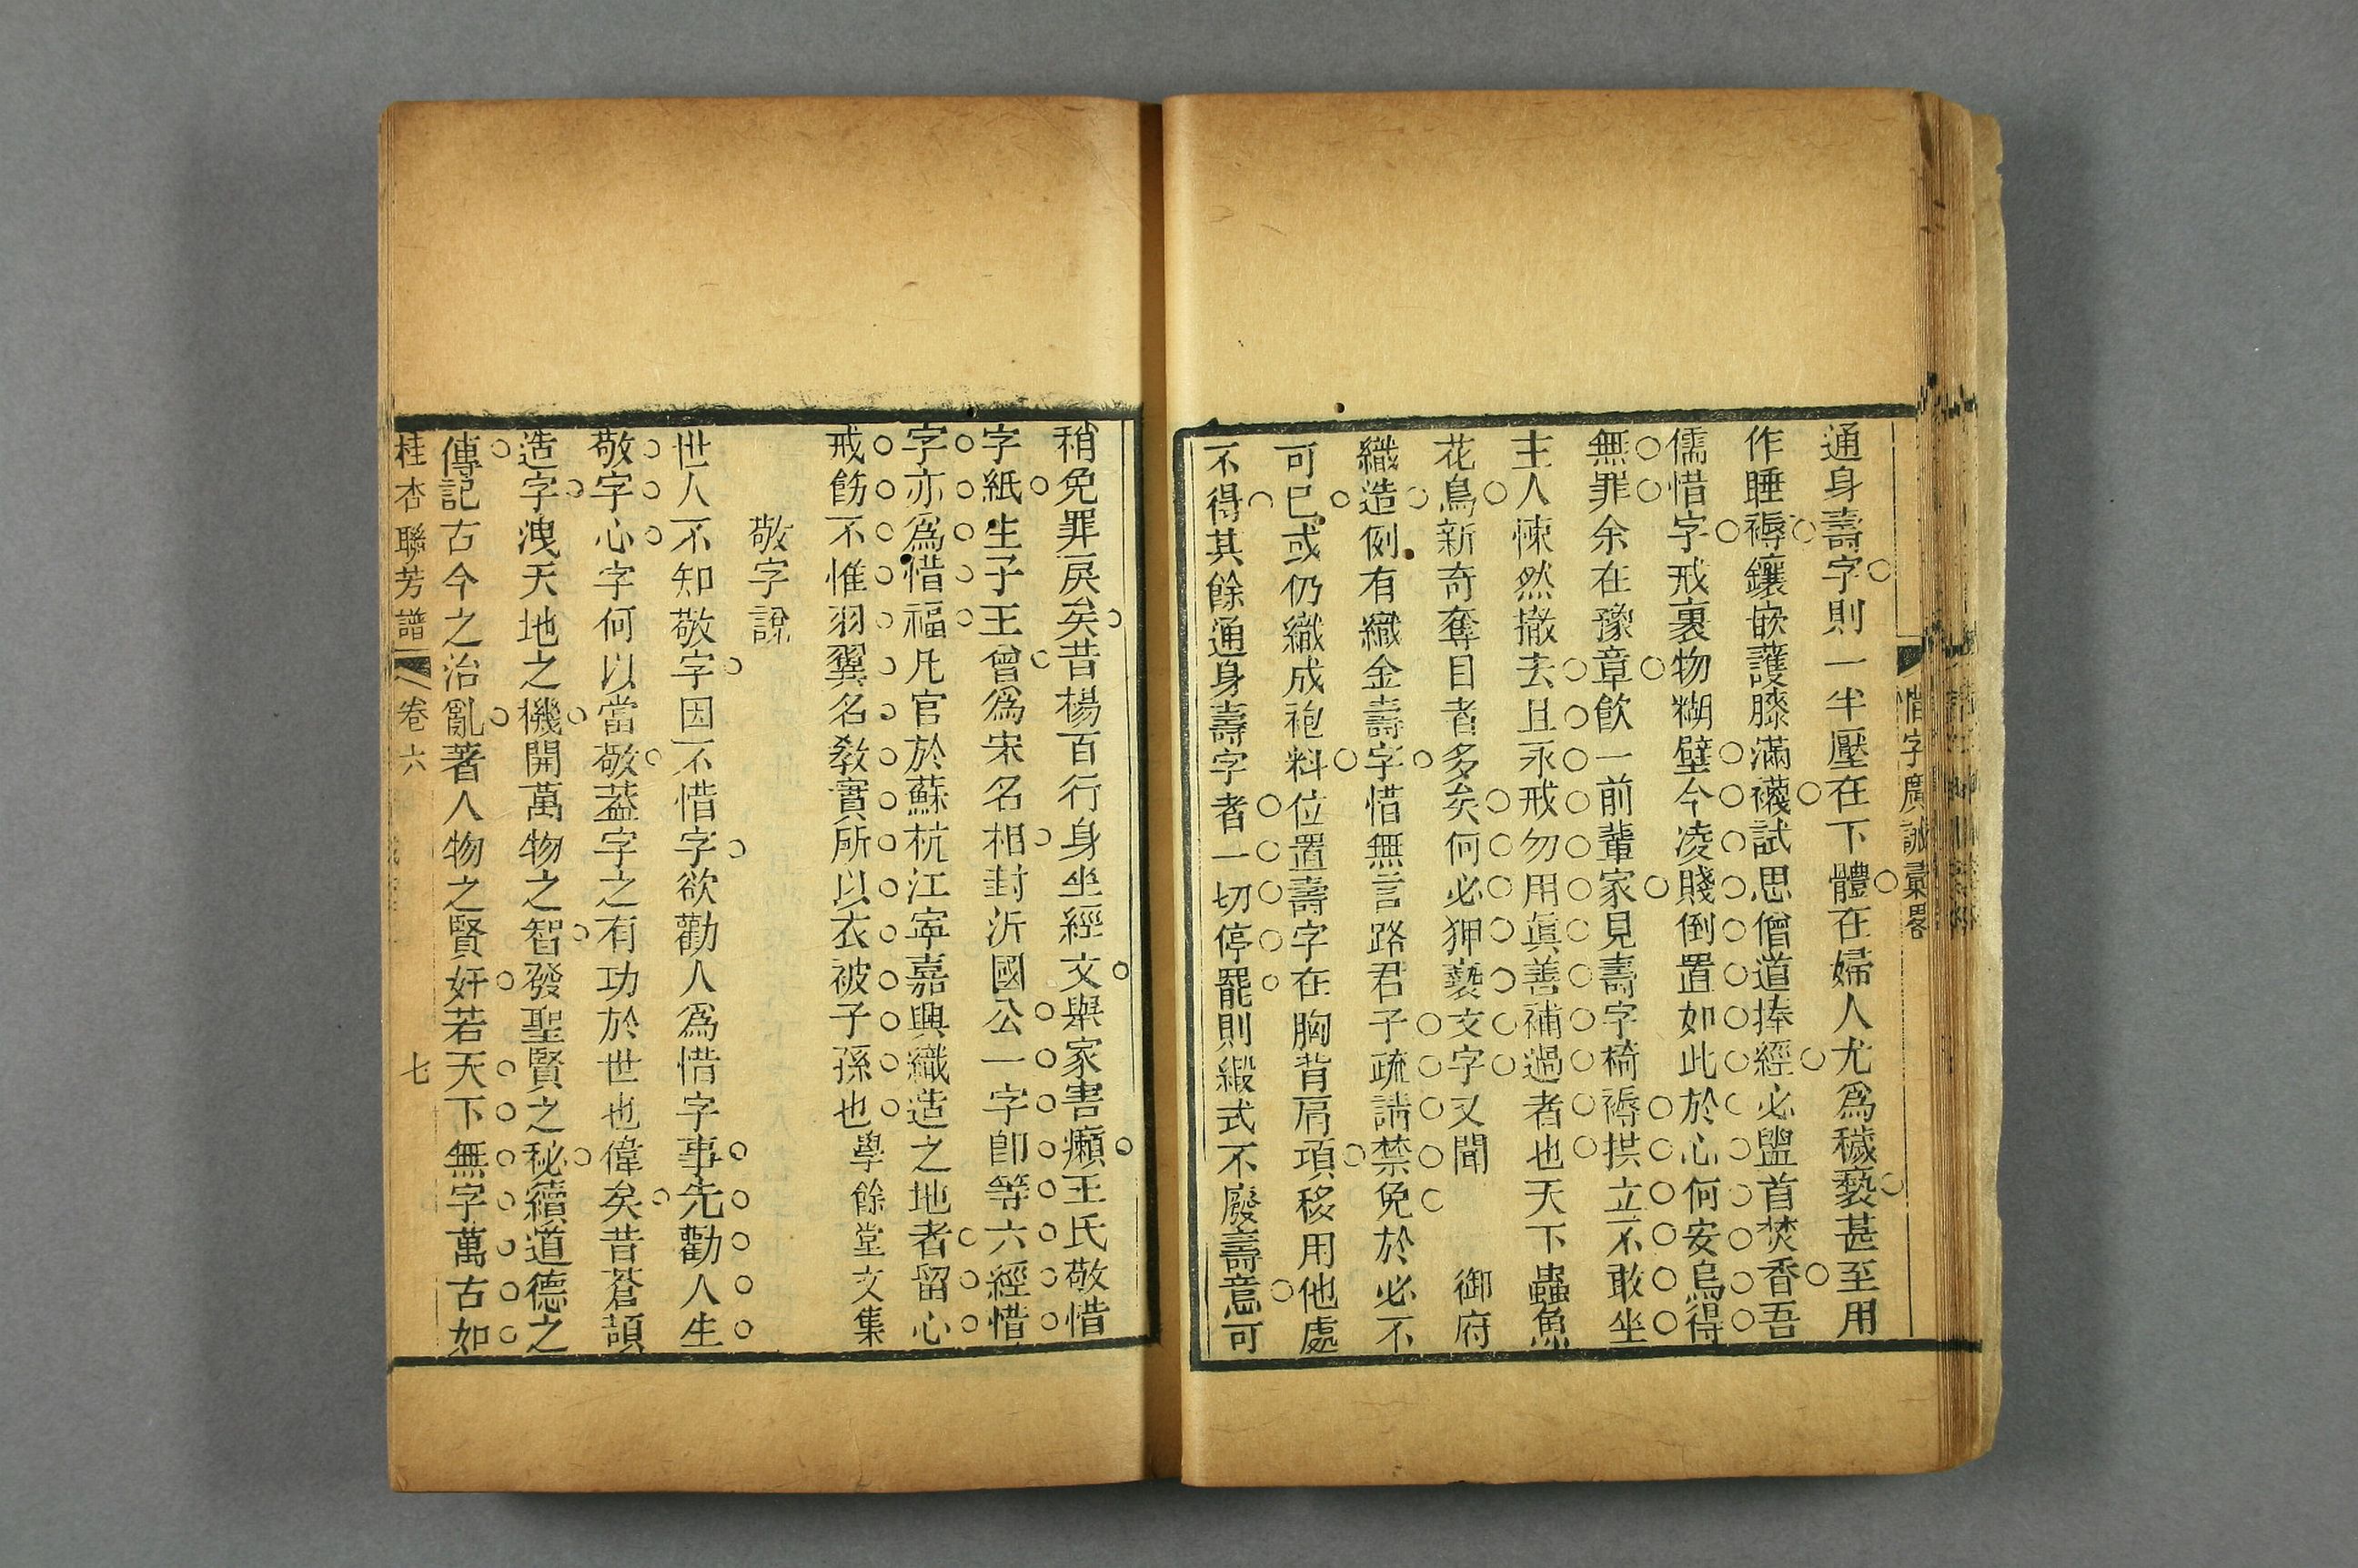 惜字廣誠彙畧
通身壽字則一半壓在下體在婦人尤爲穢褻甚至用
作睡褥鑲嵌護膝滿襪試思僧道捧經必盥首焚香吾
儒惜字戒裹物糊壁今凌賤倒置如此於心何安烏得
無罪余在豫章飲一前輩家見壽字椅褥拱立不敢坐
主人悚然撤去且永戒勿用眞善補過者也天下蟲魚
花鳥新奇奪目者多矣何必狎褻文字又聞 御府
織造例有織金壽字惜無言路君子疏請禁免於必不
可已或仍織成袍料位置壽字在胸背肩項移用他處
不得其餘通身壽字者一切停罷則緞式不廢壽意可
稍免罪戾矣昔楊百行身坐經文舉家害癩王氏敬惜
字紙生子王曾爲宋名相封沂國公一字卽等六經惜
字亦爲惜福凡官於蘇杭江寧嘉興織造之地者留心
戒飭不惟羽翼名敎實所以衣被子孫也 學餘堂文集
敬字說
世人不知敬字因不惜字欲勸人爲惜字事先勸人生
敬字心字何以當敬蓋字之有功於世也偉矣昔蒼頡
造字洩天地之機開萬物之智發聖賢之秘續道德之
傳記古今之治亂著人物之賢奸若天下無字萬古如
桂杏聯芳譜 卷六 七